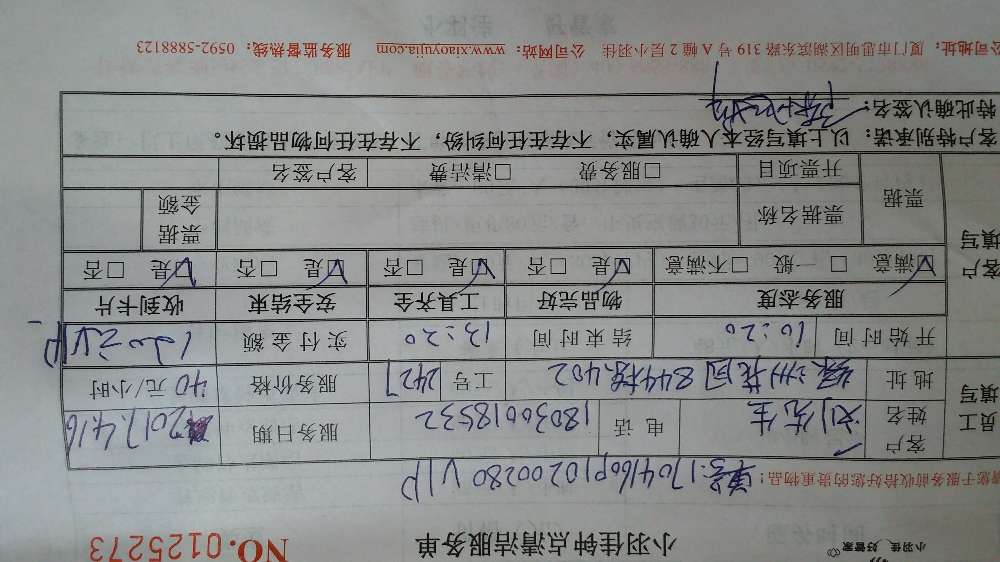 小羽佳 好管家
小羽佳钟点清洁服务单 NO.0125273
请您于服务前收拾好您的贵重物品： 单号:1704160P10200280 VIP
员工填写 客户姓名 刘先生 电话 18030018532 服务日期 2017.4.16
地址 绿洲花园844楼.402 工号 2427 服务价格 40元/小时
开始时间 10:20 结束时间 13:20 实付金额 120元VIP
客户填写 服务态度 物品完好 工具齐全 安全结束 收到卡片
☑满意 □一般 □不满意 ☑是 □否 ☑是 □否 ☑是 □否 ☑是 □否
票据 票据名称 票据金额
开票项目 □服务费 □清洁费 客户签名
客户特别承诺：以上填写经本人确认属实，不存在任何纠纷，不存在任何物品损坏。
特此确认签名：
公司地址：厦门市思明区湖滨东路319号A幢2层小羽佳 公司网站：www.xiaoyujia.com 服务监督热线：0592-5888123